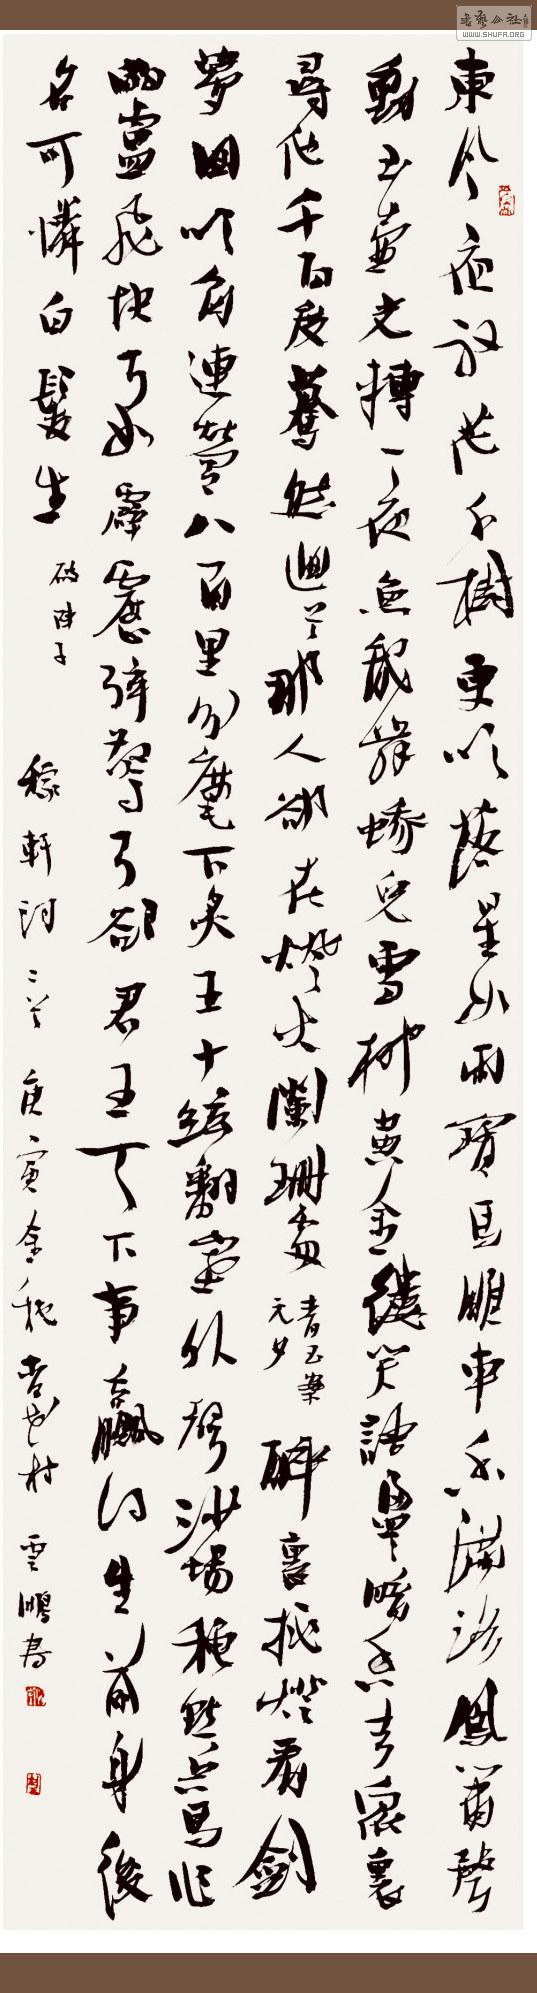 書藝公社
WWW.SHUFA.ORG
東風夜放花千樹更吹落星如雨寶馬雕車香滿路鳳簫聲
動玉壺光轉一夜魚龍舞蛾兒雪柳黃金縷笑語盈盈暗香去眾裏
尋他千百度驀然迴首那人卻在燈火闌珊處
青玉案
元夕
醉裏挑燈看劍
夢回吹角連營八百里分麾下炙五十弦翻塞外聲沙場秋點兵馬作
的盧飛快弓如霹靂弦驚了卻君王天下事贏得生前身後
名可憐白髮生
破陣子
稼軒詞二首庚寅金秋杏花村雲鵬書